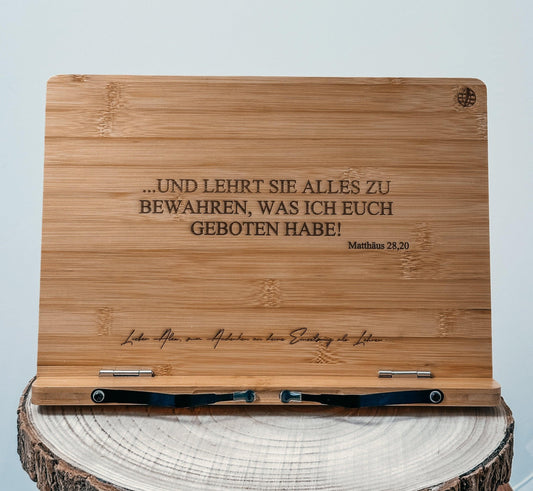 ...UND LEHRT SIE ALLES ZU
BEWAHREN, WAS ICH EUCH
GEBOTEN HABE!
Matthäus 28,20
Lieber Alex, zum Andenken an deine Einsetzung als Lehrer